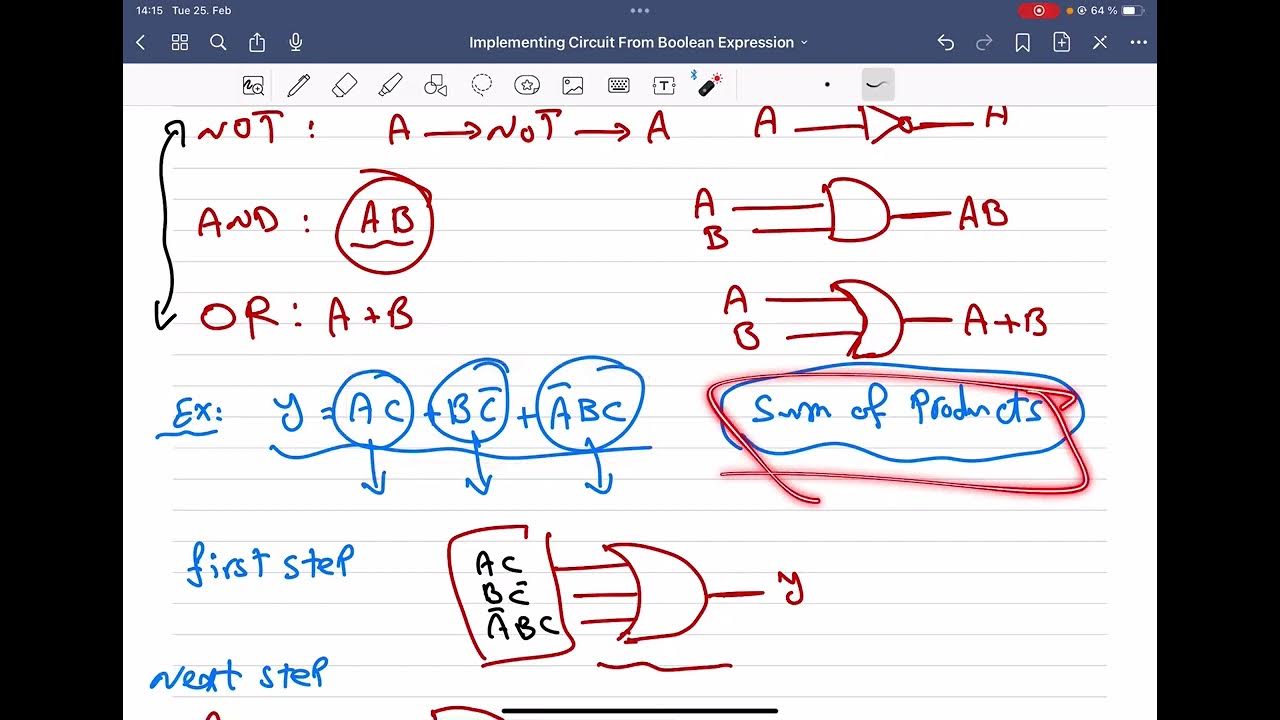 14:15 Tue 25. Feb 64 %
Implementing Circuit From Boolean Expression
NOT : A → NOT → A A
AND : AB A B AB
OR : A+B A B A+B
Ex: y = AC + BC̅ + A̅BC Sum of Products
first step AC BC̅ A̅BC y
next step